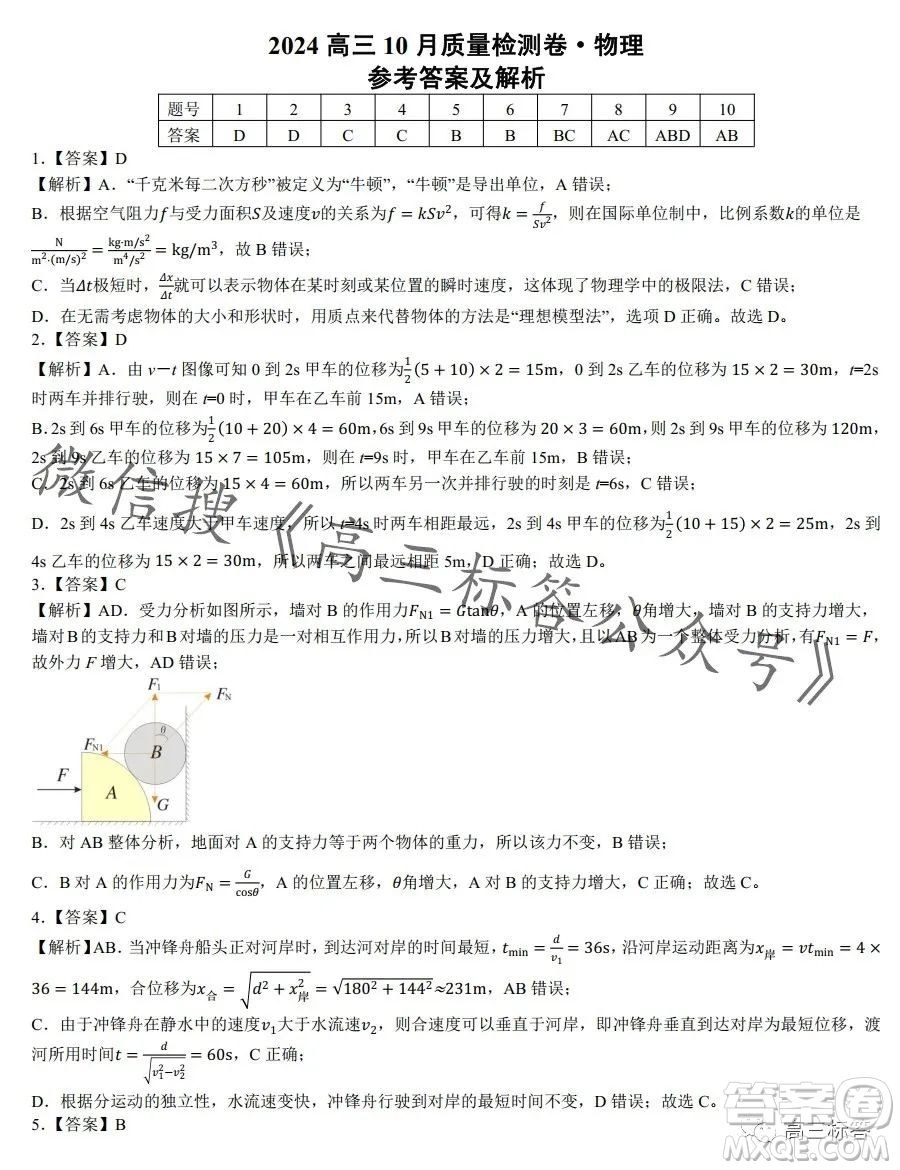 2024 高三 10 月质量检测卷·物理
参考答案及解析
题号 1 2 3 4 5 6 7 8 9 10
答案 D D C C B B BC AC ABD AB
1.【答案】D
【解析】A．“千克米每二次方秒”被定义为“牛顿”，“牛顿”是导出单位，A 错误；
B．根据空气阻力f与受力面积S及速度v的关系为f = kSv²，可得k = f/(Sv²)，则在国际单位制中，比例系数k的单位是
N/(m²·(m/s)²) = (kg·m/s²)/(m⁴/s²) = kg/m³，故 B 错误；
C．当Δt极短时，Δx/Δt就可以表示物体在某时刻或某位置的瞬时速度，这体现了物理学中的极限法，C 错误；
D．在无需考虑物体的大小和形状时，用质点来代替物体的方法是“理想模型法”，选项 D 正确。故选 D。
2.【答案】D
【解析】A．由 v－t 图像可知 0 到 2s 甲车的位移为1/2(5 + 10) × 2 = 15m，0 到 2s 乙车的位移为 15 × 2 = 30m，t=2s
时两车并排行驶，则在 t=0 时，甲车在乙车前 15m，A 错误；
B. 2s 到 6s 甲车的位移为1/2(10 + 20) × 4 = 60m，6s 到 9s 甲车的位移为 20 × 3 = 60m，则 2s 到 9s 甲车的位移为 120m，
2s 到 9s 乙车的位移为 15 × 7 = 105m，则在 t=9s 时，甲车在乙车前 15m，B 错误；
C．2s 到 6s 乙车的位移为 15 × 4 = 60m，所以两车另一次并排行驶的时刻是 t=6s，C 错误；
D．2s 到 4s 乙车速度大于甲车速度，所以 t=4s 时两车相距最远，2s 到 4s 甲车的位移为1/2(10 + 15) × 2 = 25m，2s 到
4s 乙车的位移为 15 × 2 = 30m，所以两车之间最远相距 5m，D 正确；故选 D。
3.【答案】C
【解析】AD．受力分析如图所示，墙对 B 的作用力F_N1 = Gtanθ，A 的位置左移，θ角增大，墙对 B 的支持力增大，
墙对 B 的支持力和 B 对墙的压力是一对相互作用力，所以 B 对墙的压力增大，且以 AB 为一个整体受力分析，有F_N1 = F，
故外力 F 增大，AD 错误；
F₁
F_N
θ
F_N1
B
F
A
G
B．对 AB 整体分析，地面对 A 的支持力等于两个物体的重力，所以该力不变，B 错误；
C．B 对 A 的作用力为F_N = G/cosθ，A 的位置左移，θ角增大，C 正确；故选 C。
4.【答案】C
【解析】AB．当冲锋舟船头正对河岸时，到达河对岸的时间最短，t_min = d/v₁ = 36s，沿河岸运动距离为x_岸 = vt_min = 4 ×
36 = 144m，合位移为x_合 = √(d² + x_岸²) = √(180² + 144²) ≈231m，AB 错误；
C．由于冲锋舟在静水中的速度v₁大于水流速v₂，则合速度可以垂直于河岸，即冲锋舟垂直到达对岸为最短位移，渡
河所用时间t = d/√(v₁²−v₂²) = 60s，C 正确；
D．根据分运动的独立性，水流速度变快，冲锋舟行驶到对岸的最短时间不变，D 错误。故选 C。
5.【答案】B
微信搜《高三标答公众号》
高三标答
答案圈
MXQE.COM